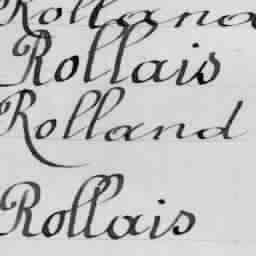 Rolland
Rollais
Rolland
Rollais